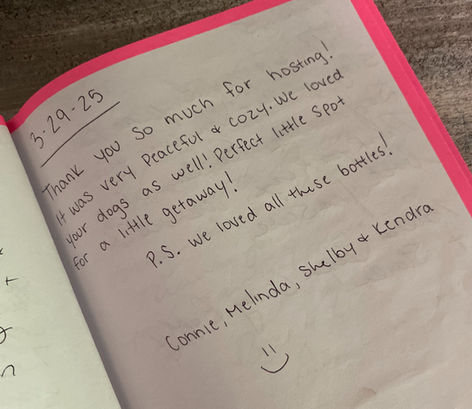 3.29.25
Thank you so much for hosting!
It was very peaceful & cozy. We loved
your dogs as well! Perfect little spot
for a little getaway!
P.S. We loved all these bottles!
Connie, Melinda, Shelby & Kendra